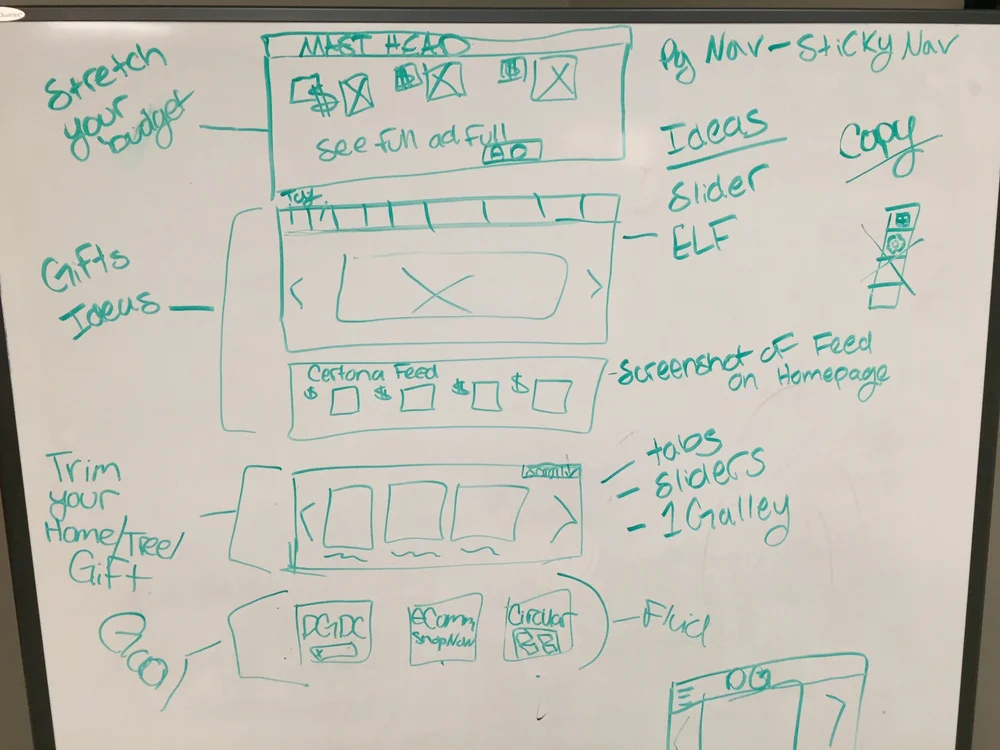 Stretch
your
budget
MAST HEAD
$
$
$
see full ad full
AD
Pg Nav - Sticky Nav
Ideas
Slider
ELF
Copy
Gifts
Ideas
Certona Feed
$ $ $ $
- Screenshot of Feed
on Homepage
Trim
your
Home/Tree/
Gift
- tabs
- Sliders
- 1 Galley
DGDC
eComm
ShopNow
Circular
- Fluid
DG